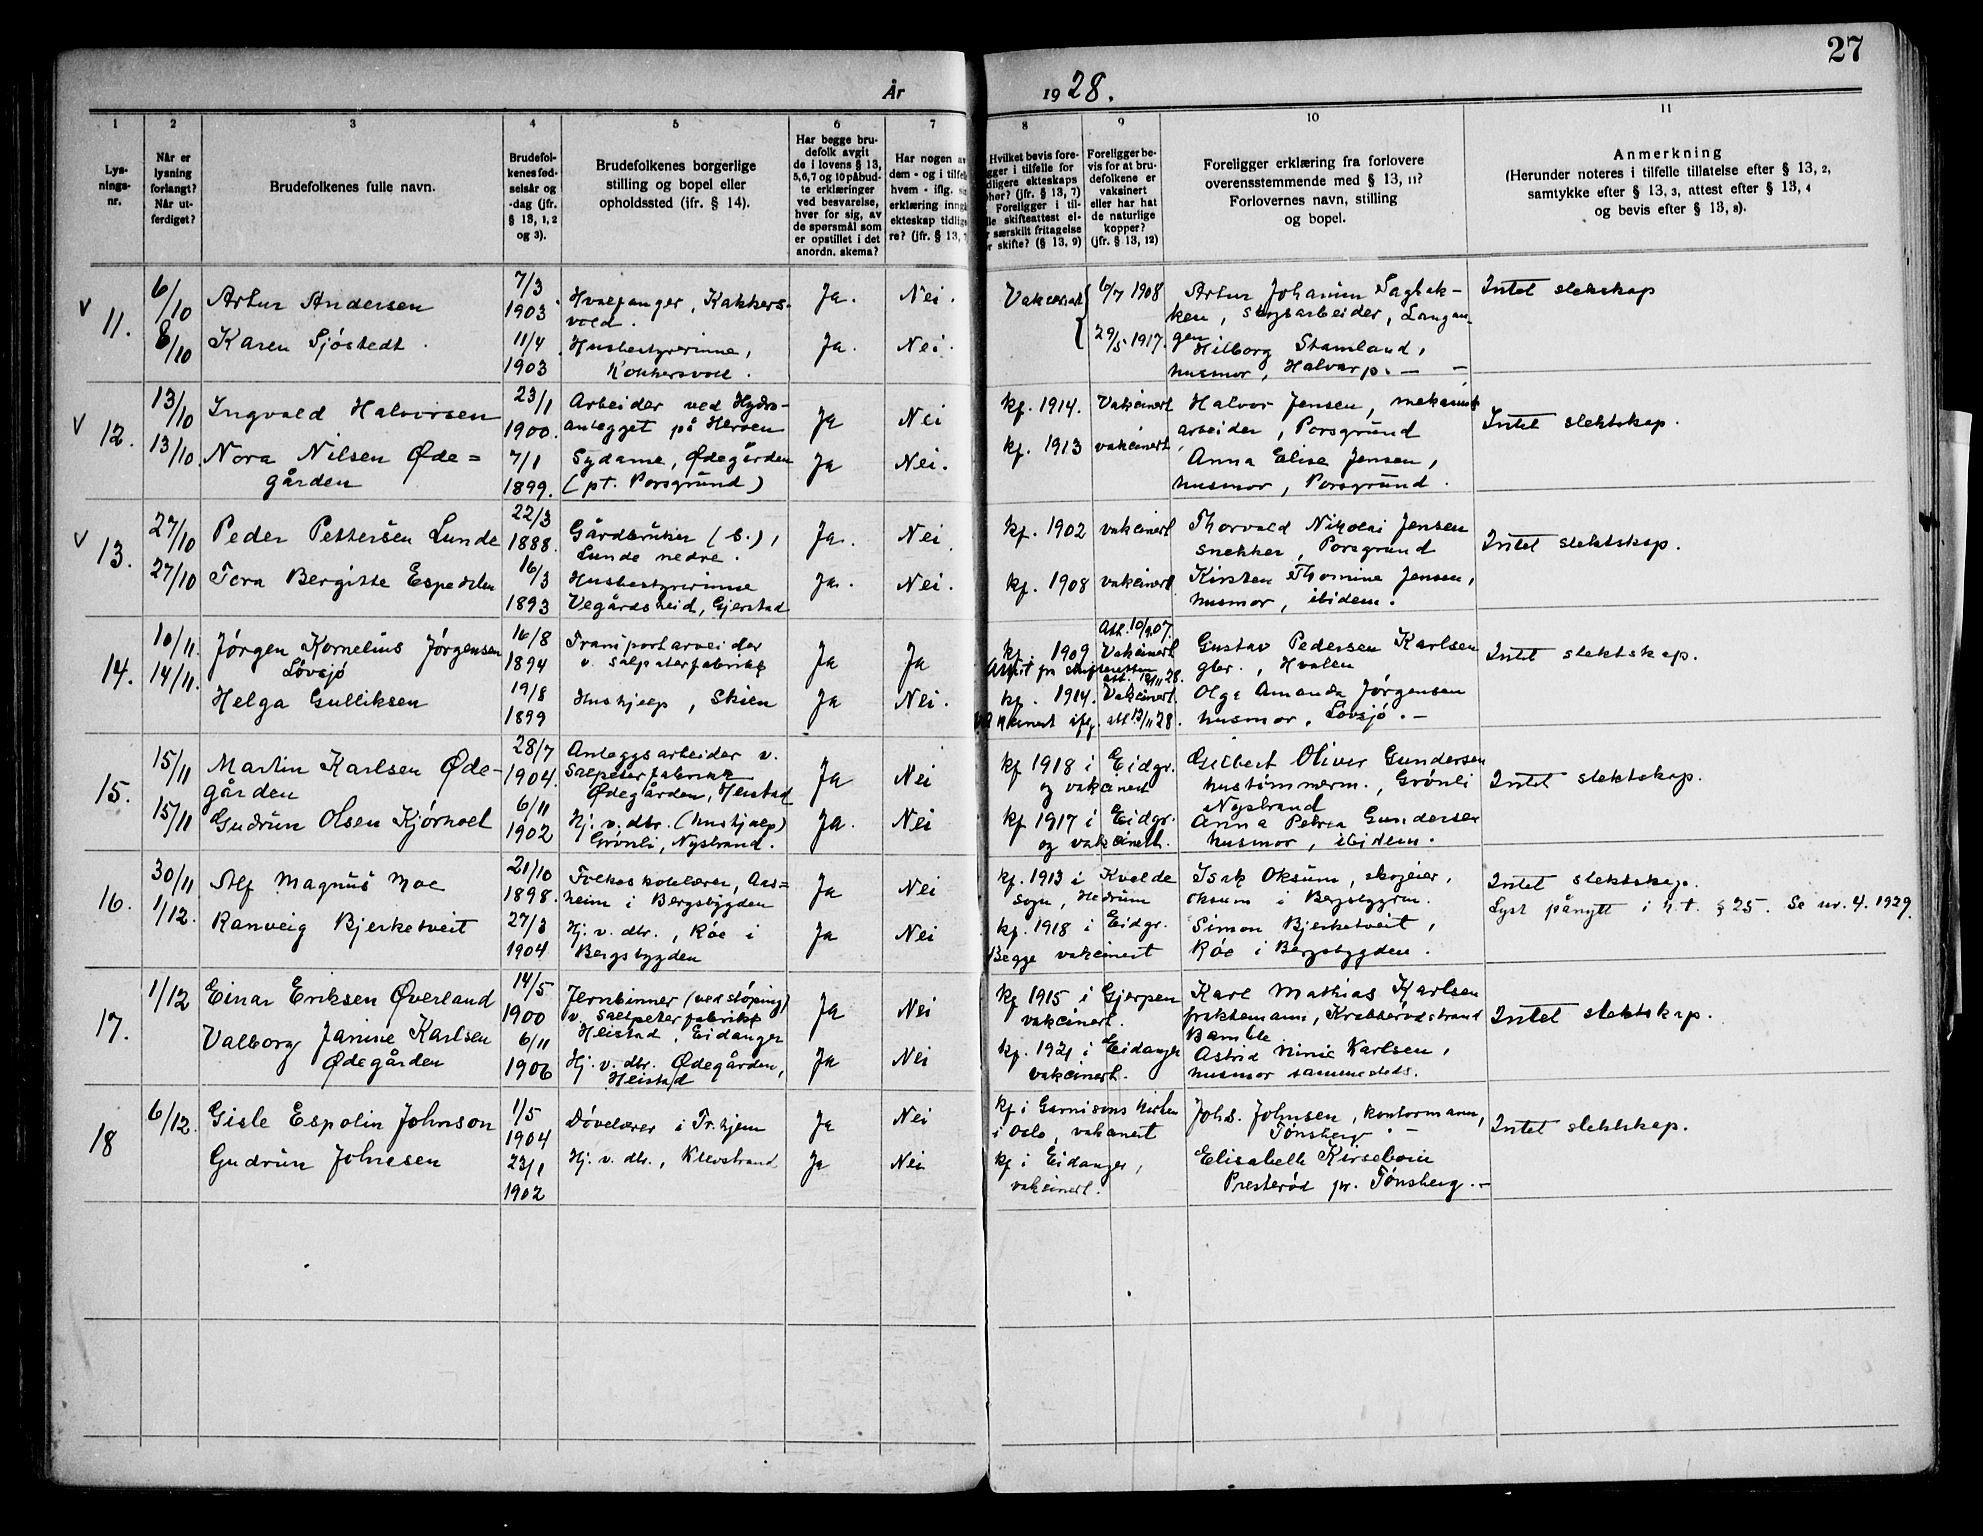 27
År 1928.
1 2 3 4 5 6 7 8 9 10 11
Lys-
nings-
nr.
Når er
lysning
forlangt?
Når ut-
ferdiget?
Brudefolkenes fulle navn.
Brudefol-
kenes fød-
selsår og
-dag (jfr.
§ 13, 1, 2
og 3).
Brudefolkenes borgerlige
stilling og bopel eller
opholdssted (ifr. § 14).
Har begge bru-
defolk avgit
de i lovens § 13,
5,6,7 og 10 påbud-
te erklæringer
ved besvarelse,
hver for sig, av
de spørsmål som
er opstillet i det
anordn. skema?
Har nogen av
dem - og i tilfelle
hvem - iflg. s
erklæring inng
ekteskap tidlig
re? (jfr. § 13,
Hvilket bevis fore-
gger i tilfelle for
dligere ekteskaps
pher? (jfr. § 13, 7)
Foreligger i til-
lle skifteattest el-
r særskilt fritagelse
r skifte? (§ 13, 9)
Foreligger be-
vis for at bru-
defolkene er
vaksinert
eller har hat
de naturlige
kopper?
(jfr. § 13, 12)
Foreligger erklæring fra forlovere
overensstemmende med § 13, 11?
Forlovernes navn, stilling
og bopel.
Anmerkning
(Herunder noteres i tilfelle tillatelse efter § 13, 2,
samtykke efter § 13, 3, attest efter § 13, 4
og bevis efter § 13, 8).
v 11.
6/10
8/10
Artur Andersen
Karen Sjöstedt.
7/3
1903
11/4
1903
Hvalfanger, Kokkers-
vold.
Husbestyrerinne,
Kokkersvold.
Ja. Nei.
Ja. Nei.
Vakcinert { 6/7 1908
29/5 1917.
Artur Johannes Sagbak-
ken, skogsarbeider, Langan-
gen
Hilborg Stamland,
husmor, Halvarp. — —
Intet slektskap
v 12.
13/10
13/10.
Ingvald Halvorsen
Nora Nilsen Øde =
gården
23/1
1900.
7/1
1899.
Arbeider ved Hydro-
anlegget på Herøen
Sydame, Ødegården
(pt. Porsgrund)
Ja Nei
Ja Nei.
kf. 1914. Vakcinert
kf. 1913 vakcinert
Halvor Jensen, mekanisk
arbeider, Porsgrund
Anna Elise Jensen,
husmor, Porsgrund.
Intet slektskap.
v 13.
27/10
27/10
Peder Pettersen Lunde
Tora Bergitte Espedalen
22/3
1888.
16/3
1893
Gårdbruker (b.),
Lunde nedre.
Husbestyrerinne
Vegårdsheid, Gjerstad
Ja. Nei
Ja. Nei.
kf. 1902 vakcinert
kf. 1908 vakcinert
Thorvald Nikolai Jensen
snekker, Porsgrund
Kirsten Thomine Jensen,
husmor, ibidem.
Intet slektskap.
14.
10/11
14/11.
Jørgen Kornelius Jørgensen
Løvsjø
Helga Gulliksen
16/8
1894
19/8
1899
Transportarbeider
v. salpeterfabrikk
Hushjelp, Skien
Ja Ja
Ja Nei.
Att. 10/9.07.
kf. 1909 Vakcinert
Attest fra skifteretten
att. 12/11 28.
kf. 1914. Vakcinert
Vakcinert iflg. att 12/11 28.
Gustav Pedersen Karlsen
gbr., Hvalen
Olga Amanda Jørgensen
husmor, Løvsjø. —
Intet slektskap.
15.
15/11
15/11
Martin Karlsen Øde-
gården
Gudrun Olsen Kjørholt
28/7
1904.
6/11
1902
Anleggsarbeider v.
Salpeterfabrikk
Ødegården, Heistad
Hj. v. dbr. (hushjelp)
Grønli, Nystrand.
Ja Nei
Ja. Nei
kf 1918 i Eidgr.
og vakcinert
kf 1917 i Eidgr.
og vakcinert.
Gilbert Oliver Gundersen
hustømmerm., Grønli
Nystrand
Anna Petrea Gundersen
husmor, ibidem.
Intet slektskap.
16.
30/11
1/12.
Alf Magnus Moe
Ranveig Bjerketveit
21/10
1898.
27/3
1904
Folkeskolelærer, Aas=
heim i Bergsbygden
Hj. v. dbr., Røe i
Bergsbygden
Ja Nei
Ja Nei
kf. 1913 i Kvelde
sogn, Hedrum
kf. 1918 i Eidgr.
Begge vakcinert
Isak Oksum, skogeier,
Oksum i Bergsbygden.
Simon Bjerketveit,
Røe i Bergsbygden.
Intet slektskap.
Lyst pånytt i h.t. § 25. Se nr. 4. 1929.
17.
1/12
Einar Eriksen Øverland
Valborg Janine Karlsen
Ødegården
14/5
1900
6/11
1906
Jernbinner (ved støping)
v. Saltpeterfabrikk
Heistad, Eidanger
Hj. v. dbr. Ødegården,
Heistad
Ja Nei
Ja Nei
kf 1915 i Gjerpen
vakcinert.
kf. 1921 i Eidanger
vakcinert.
Karl Mathias Karlsen
fraktemann, Krabberødstrand
Bamble
Astrid Minie Karlsen,
husmor sammesteds.
Intet slektskap.
18
6/12.
Gisle Espolin Johnson
Gudrun Johnsen
1/5
1904
23/1
1902
Døvelærer i Tr.hjem
Hj. v. dbr., Klevstrand
Ja Nei
Ja Nei
kf i Garnisons kirken
i Oslo, vakcinert
kf i Eidanger,
vakcinert.
Johs. Johnsen, kontormann,
Tønsberg. —
Elisabeth Kirseboin
Presterød pr. Tønsberg. —
Intet slektskap.